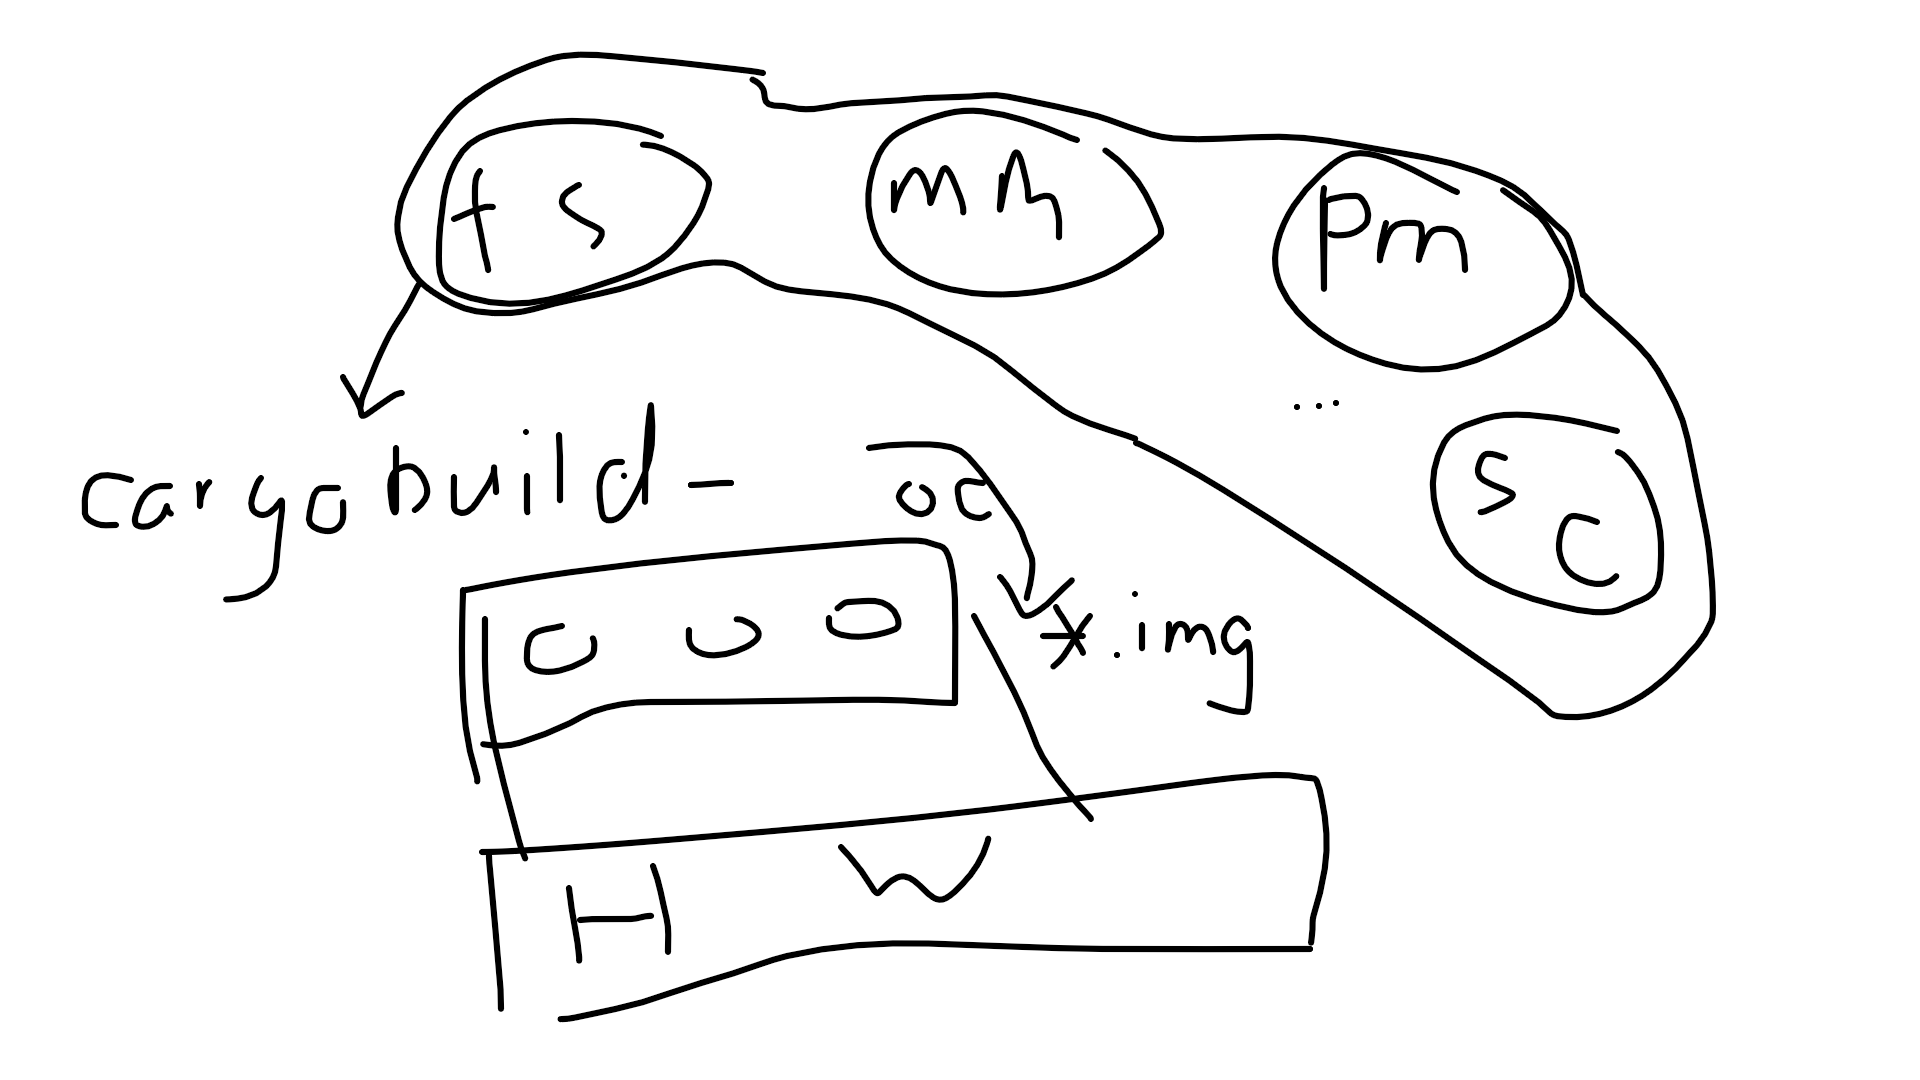 fs mm pm
...
sc
cargo build - oc
*.img
H W